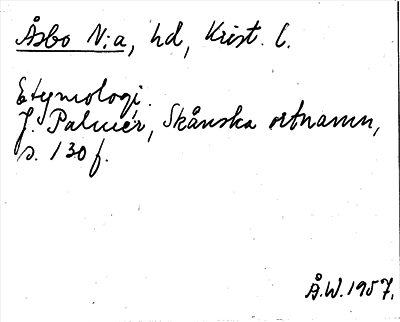 Åsbo N:a, hd, Krist. l.
Etymologi.
J. Palmér, Skånska ortnamn,
s. 130 f.
Å.W. 1957.